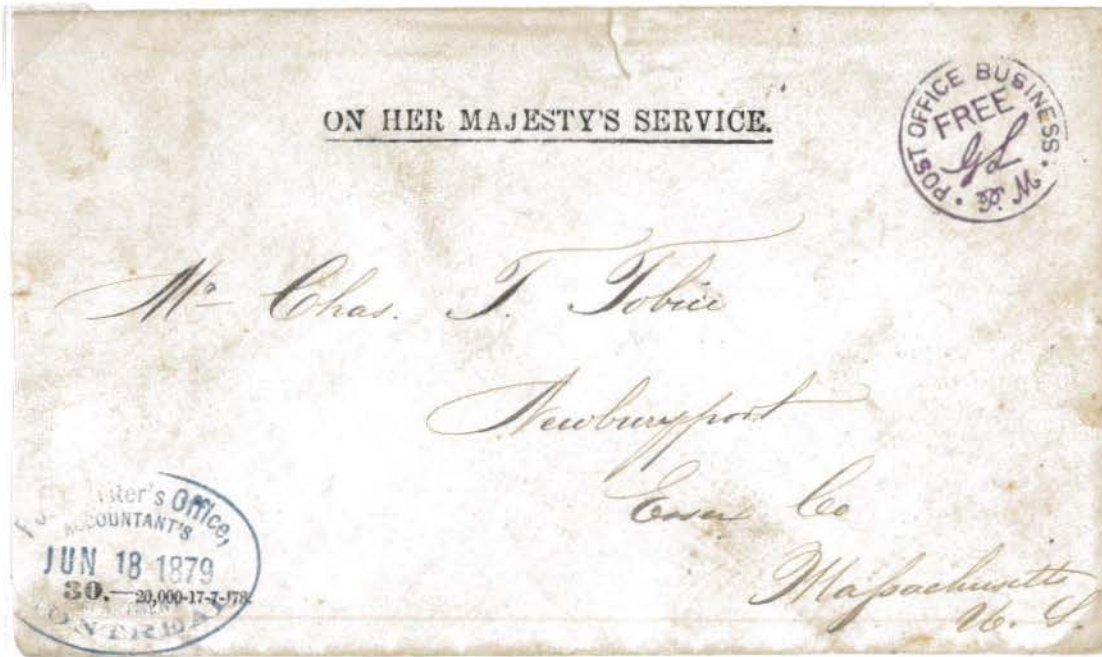 ON HER MAJESTY'S SERVICE.
POST OFFICE BUSINESS
FREE
P. M.
Mr Chas. T. Tobie
Newburyport
Essex Co
Massachusetts
U. S.
Office,
ACCOUNTANT'S
JUN 18 1879
30.—20,000-17-7-'78.
MONTREAL